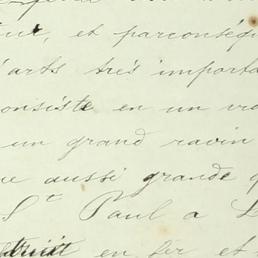 et parconséqu
d'arts très importa
consiste en un
un grand ravin
ue aussi grande q
St Paul a L
en fer et